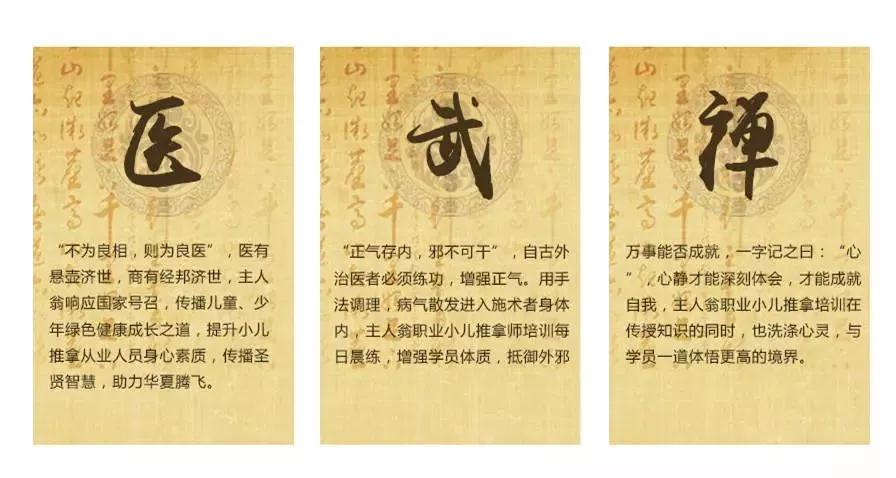 医
“不为良相，则为良医”，医有
悬壶济世，商有经邦济世，主人
翁响应国家号召，传播儿童、少
年绿色健康成长之道，提升小儿
推拿从业人员身心素质，传播圣
贤智慧，助力华夏腾飞。
武
“正气存内，邪不可干”，自古外
治医者必须练功，增强正气。用手
法调理，病气散发进入施术者身体
内，主人翁职业小儿推拿师培训每
日晨练，增强学员体质，抵御外邪
禅
万事能否成就，一字记之曰：“心
”，心静才能深刻体会，才能成就
自我，主人翁职业小儿推拿培训在
传授知识的同时，也洗涤心灵，与
学员一道体悟更高的境界。